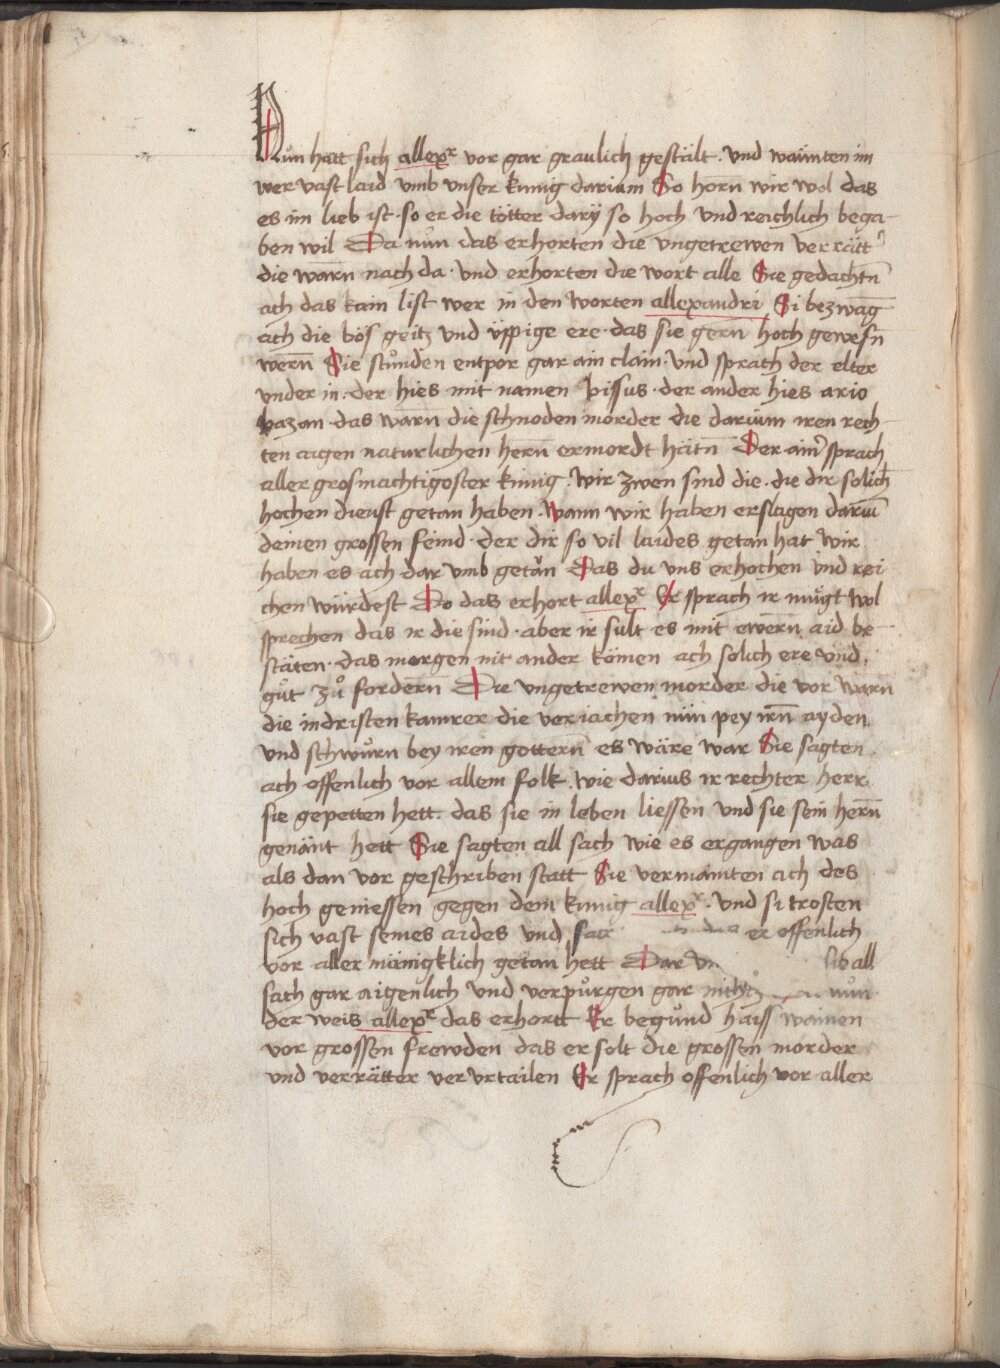 Nůn hatt sich allexr vor gar graulich gestält · und wäinten im
wer vast laid umb unser kunig darium So horn̄ wir wol das
es im lieb ist · so er die tötter darÿ so hoch und reichlich bega-
ben wil Da nůn das erhorten die ungetrewen verrätt
die warn̄ nach da · und erhorten die wort alle Sie gedachtn̄
ach das kain list wer in den worten allexandri Si bezwāg
ach die bös geitz und üppige ere · das sie gern̄ hoch gewesn̄
wern̄ Sie stůnden entpor gar ain clain · und sprach der elter
under in · der hies mit namen pissus · der ander hies ario
bazan · das warn̄ die schnoden morder die darium iren rech-
ten aigen naturlichen hern̄ ermordt hätn̄ Der ainer sprach
aller grosmachtigoster kunig · wir zwen sind die · die dir solich
hochen dienst getan haben · wann wir haben erslagen dariū
deinen grossen feind · der dir so vil laides getan hat wir
haben es ach dar umb getän Das du uns erhochen und rei
chen würdest Do das erhort allexr Er sprach ir mügt wol
sprechen das ir die sind · aber ir sult es mit ewern̄ aid be-
stäten · das morgen nit ander kömen ach solich ere und
gůt zů fordern̄ Die ungetrewen morder die vor warn
die indristen kamrer die veriachen nün pey irn̄ ayden
und schwůrn bey iren gottern̄ es wäre war Sie sagten
ach offenlich vor allem folk · wie darius ir rechter herr
sie gepetten hett · das sie in leben liessen und sie sein hern̄
genänt hett Sie sagten all sach wie es ergangen was
als dan vor geschriben statt Sie vermainten ach des
hoch geniessen gegen dem kunig allexr · und si trosten
sich vast seines aides und er offenlich
vor aller mänigklich getan hett Dar all
sach gar aigenlich und verpůrgen gar nichtz nůn
der weis allexr das erhortt Er begůnd haiss wainen
vor grossen frewden das er solt die grossen morder
und verrätter ver urtailen Er sprach offenlich vor aller